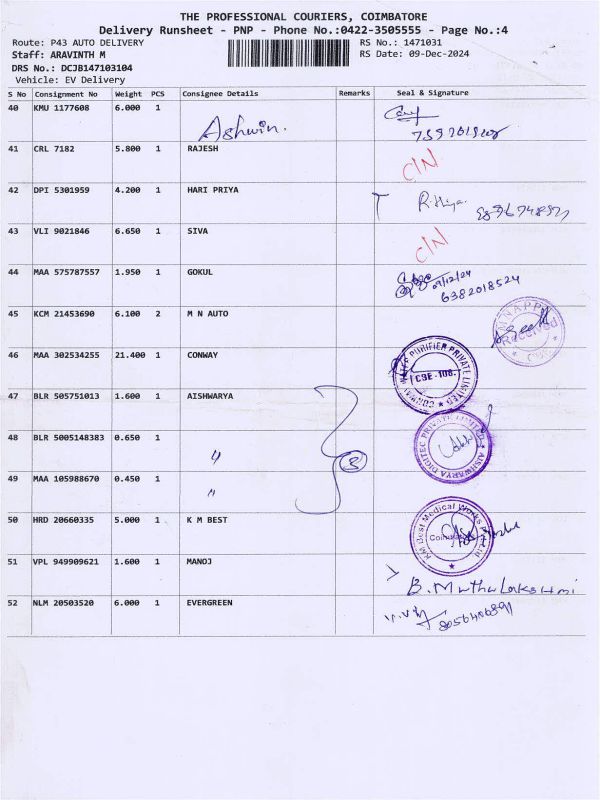 THE PROFESSIONAL COURIERS, COIMBATORE
Delivery Runsheet - PNP - Phone No.:0422-3505555 - Page No.:4
Route: P43 AUTO DELIVERY
RS No.: 1471031
Staff: ARAVINTH M
RS Date: 09-Dec-2024
DRS No.: DCJB147103104
Vehicle: EV Delivery
S No Consignment No Weight PCS Consignee Details Remarks Seal & Signature
40 KMU 1177608 6.000 1 Ashwin.
41 CRL 7182 5.800 1 RAJESH C/N
42 DPI 5301959 4.200 1 HARI PRIYA
43 VLI 9021846 6.650 1 SIVA C/N
44 MAA 575787557 1.950 1 GOKUL 09/12/24
6382018524
45 KCM 21453690 6.100 2 M N AUTO Received
46 MAA 302534255 21.400 1 CONWAY CONWAY WATER PURIFIER PRIVATE LIMITED CBE-108.
47 BLR 505751013 1.600 1 AISHWARYA
48 BLR 5005148383 0.650 1 〃 3 AISHWARYA DIGITEC PRIVATE LIMITED
49 MAA 105988670 0.450 1 〃
50 HRD 20660335 5.000 1 K M BEST KM Best Medical Works Pvt Ltd
51 VPL 949909621 1.600 1 MANOJ B. Muthu Lakshmi
52 NLM 20503520 6.000 1 EVERGREEN 8056406891